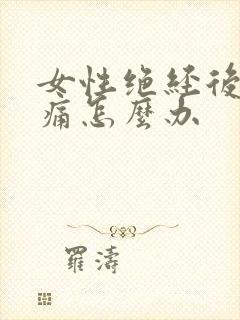 女性绝经後
痛怎麼办
羅濤